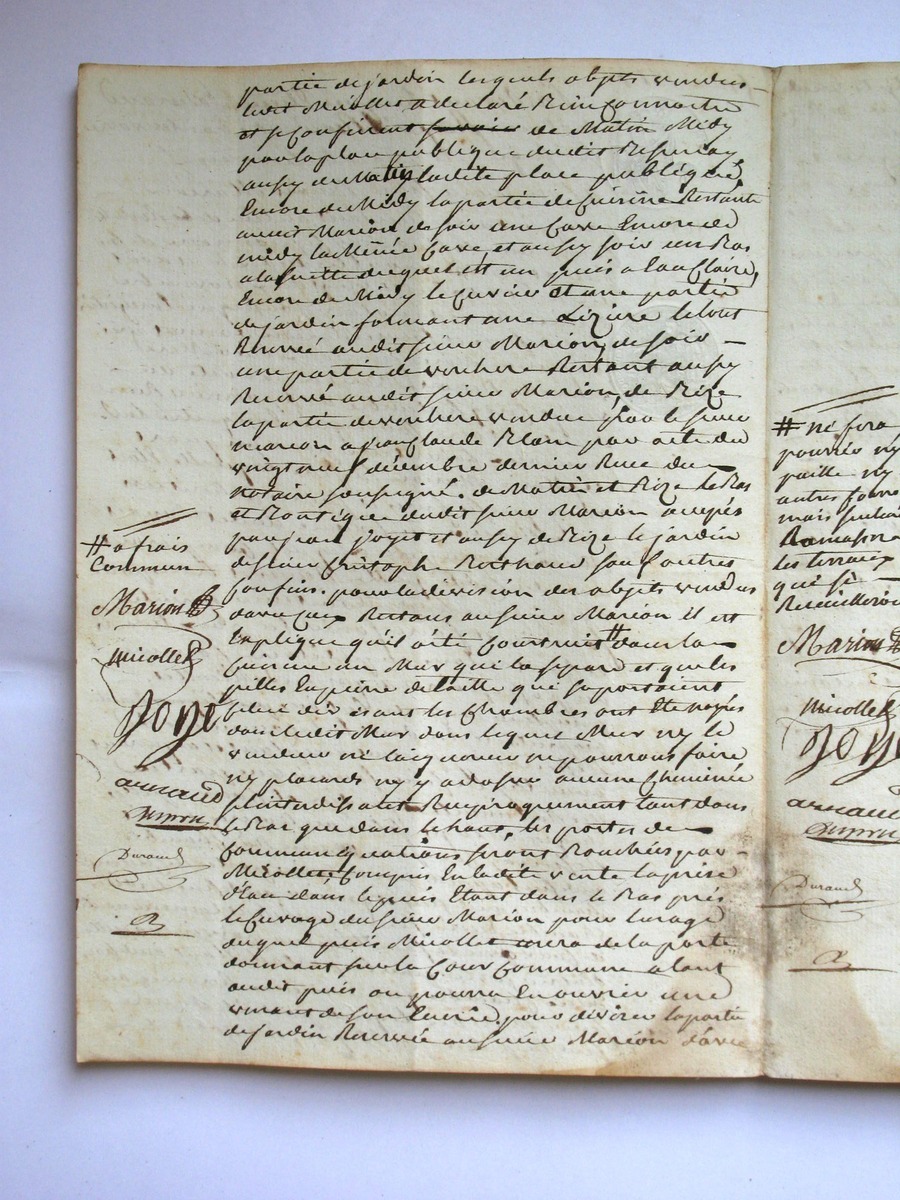 partie de jardin lesquels objets vendus
ledit Micollet a declaré bien connoitre
et se Confinent savoir de Matin Midy
par la place publique dudit
aussy de Matin ladite place publique
Encore de Midy la partie de Cuisine Restante
audit Marion de soir une Cave Encore de
midy la même Cave, et aussy soir un Bas
a la suitte duquel est un puis a Eau Claire,
Encore de Midy le Cuvier et une partie
de jardin formant une Lizière le tout
Reservé audit sieur Marion, de soir
une partie de verchere Restant aussy
Reservé audit sieur Marion, de Bize
la partie de verchere vendue par le sieur
marion a jean Claude Blain par acte du
vingt neuf décembre dernier Reçu du
notaire soussigné. de Matin et Bize le Bas
et Boutique dudit sieur Marion
par jean joyet et aussy de Bize le jardin
de sieur Cristophe Berthaud sauf autres
confins. pour la division des objets vendus
d'avec ceux Restans au sieur Marion il est
Expliqué qu'il a été Construit # dans la
Cuisine un Mur qui la separe et que les
pilles En pierre de taille qui suportaient
cidevant les Chambres ont Eté noyés
dans ledit Mur dans lequel Mur ny le
vendeur ne lacquereur ne pourront faire
ny placards ny y adosser aucune Cheminée
Reciproquement tant dans
le Bas que dans le haut, les portes de
communications seront Bouchées par
Micollet, Compris En la dite vente la prise
d'Eau dans le puis Etant dans le Bas près
le Cuvage du sieur Marion pour l'usage
duquel puis Micollet usera de la porte
donnant sur la Cour Commune alant
audit puis ou pourra En ouvrir une
venant de son Ecurie. pour diviser la partie
de jardin Reservée au sieur Marion d'avec
# a frais
Commun
Marion
Micollet
Joyet
arnaud
Simon
Durand
# ne fera
pourrir ny
paille ny
autres
mais
Ramasser
les terreaux
qui si
Marion
Micollet
Joye
arnaud
Simon
Durand